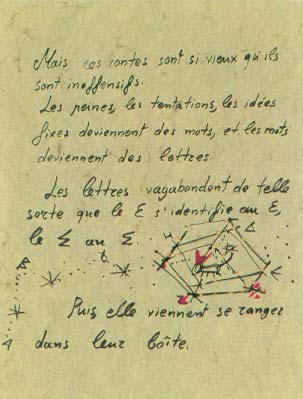 Mais ces contes sont si vieux qu'ils
sont inoffensifs.
Les peines, les tentations, les idées
fixes deviennent des mots, et les mots
deviennent des lettres
Les lettres vagabondent de telle
sorte que le Ɛ s'identifie au Ɛ,
le Σ au Σ.
Puis elle viennent se ranger
dans leur boîte.